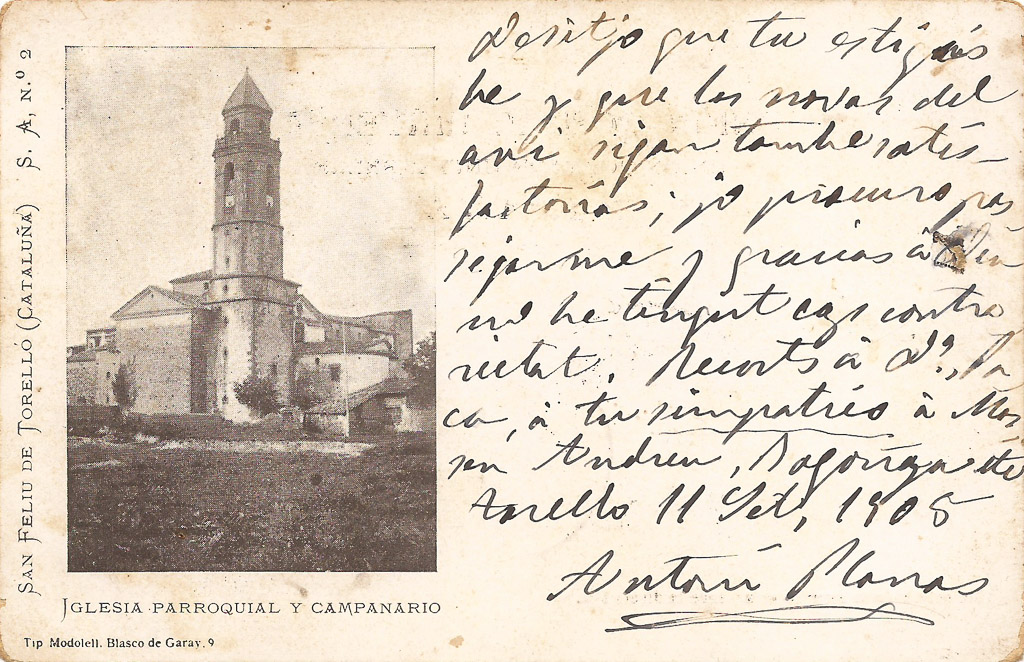 SAN FELIU DE TORELLÓ (CATALUÑA) S. A, N.º 2
IGLESIA PARROQUIAL Y CAMPANARIO
Tip Modolell. Blasco de Garay. 9
Desitjo que tu estigas
be y que las novas del
avi sigan tambe satis-
factorias; jo procuro pas
sejarme y gracias á Deu
no he tingut cap contra
rietat. Recorts á Dª, Pa
ca, á tu simpatrés á Mos
sen Andreu,
Torello 11 Set, 1905
Antoni Planas